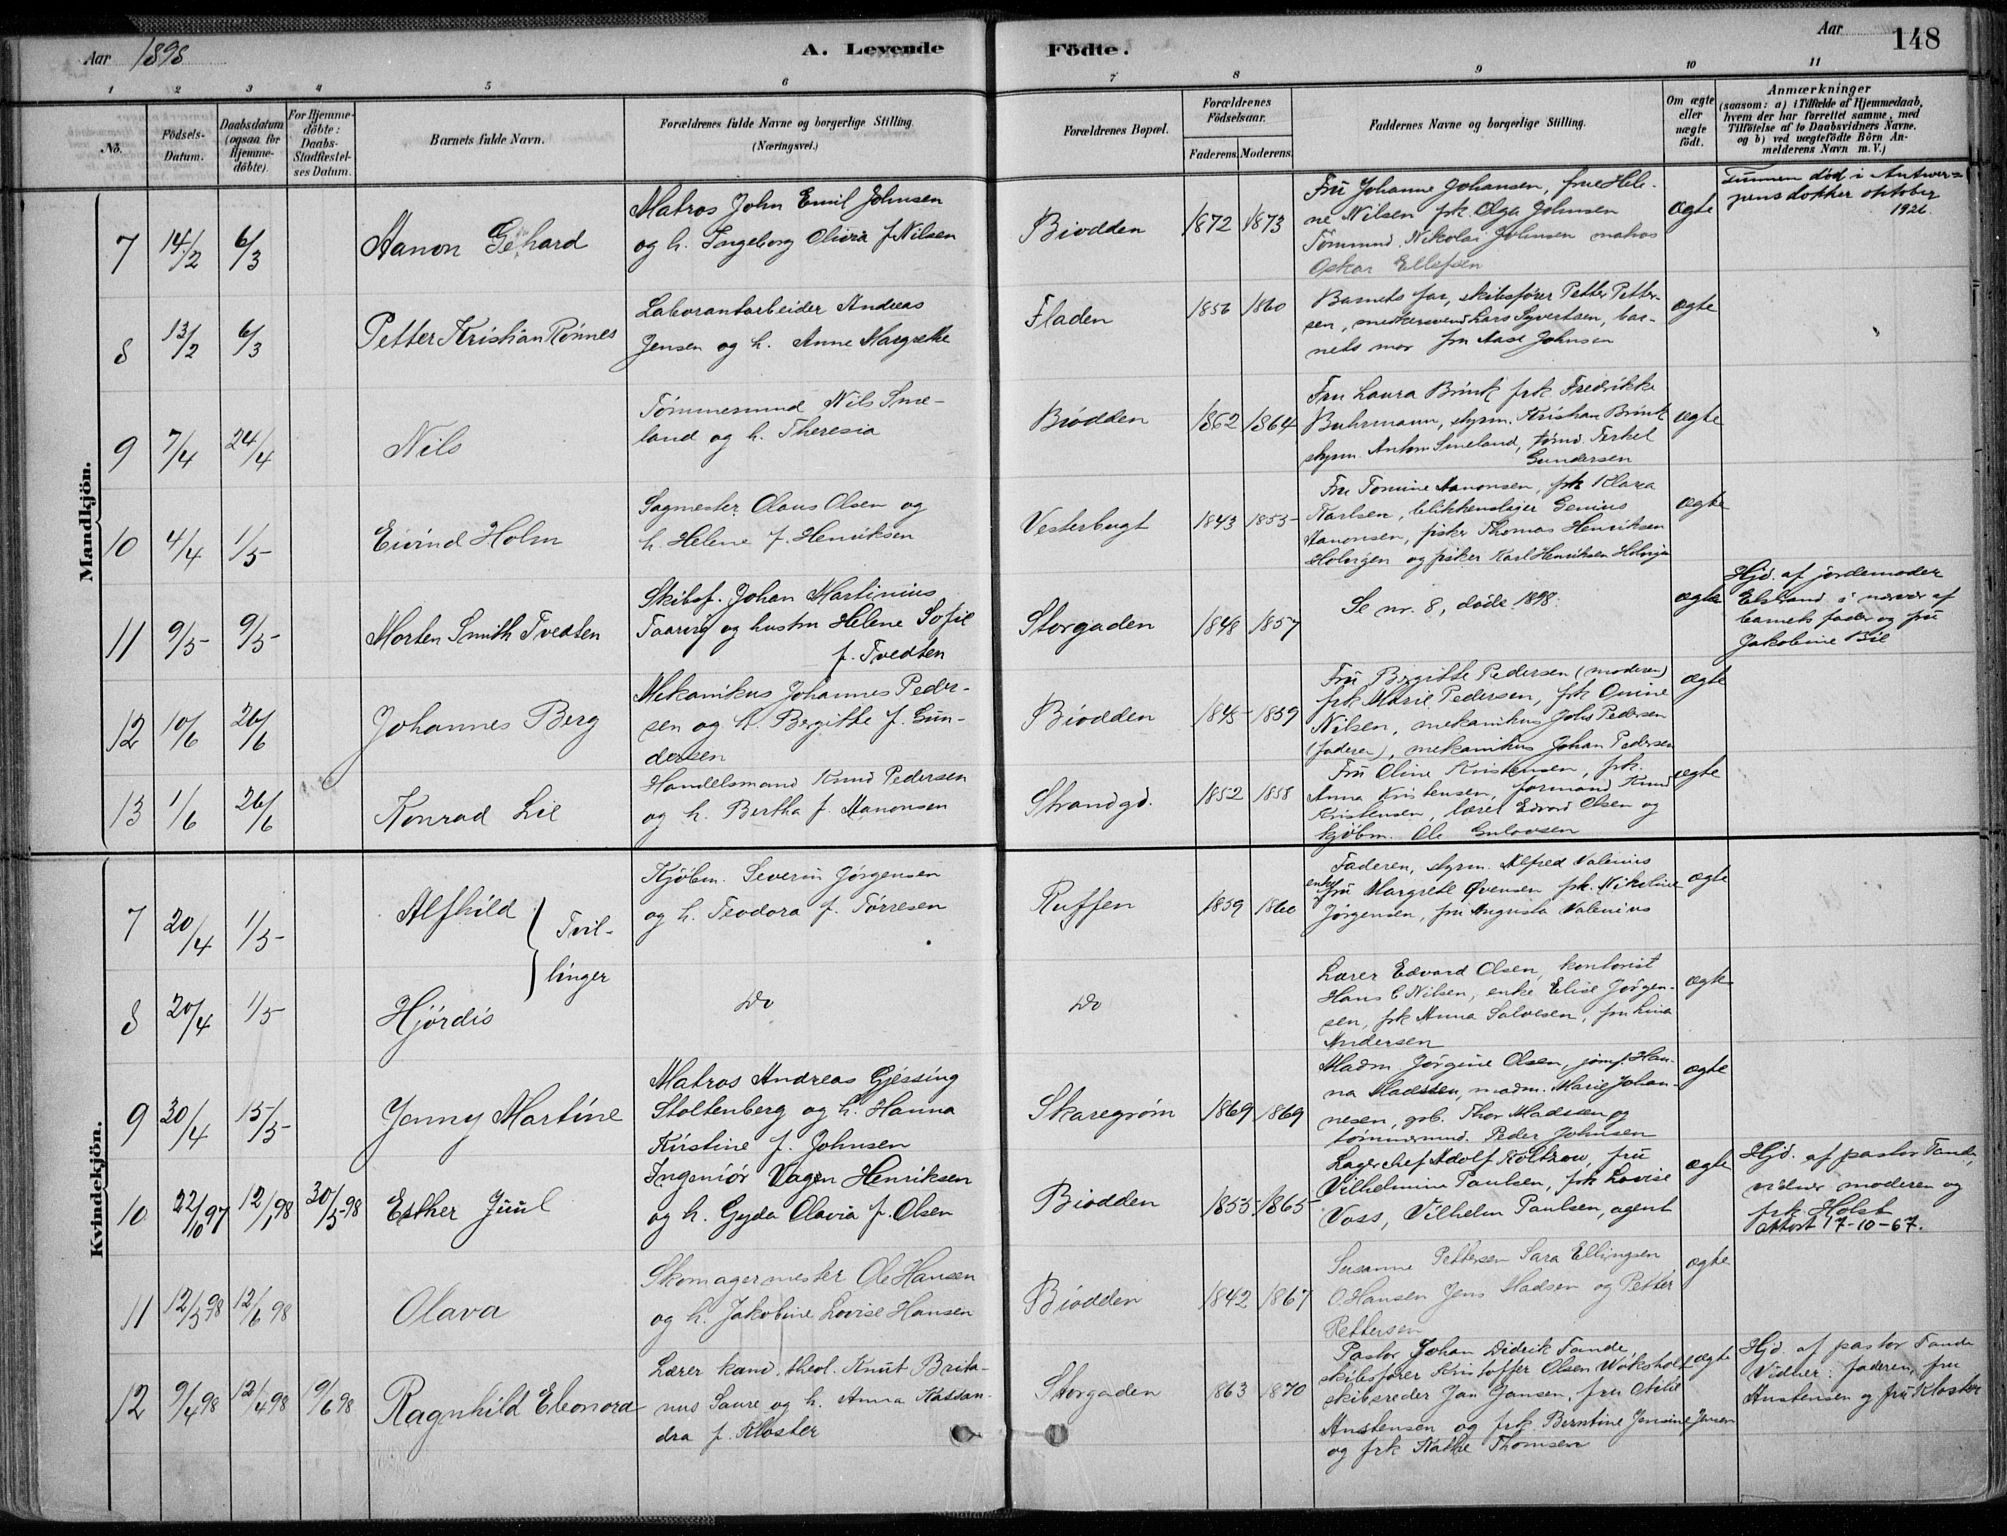 Aar 1898
A. Levende Födte.
Aar
148
1 2 3 4 5 6 7 8 9 10 11
No.
Födsels-Datum.
Daabsdatum (ogsaa for Hjemme-döbte).
For Hjemme-döbte: Daabs-Stadfæstel-ses Datum.
Barnets fulde Navn.
Forældrenes fulde Navne og borgerlige Stilling. (Næringsvei.)
Forældrenes Bopæl.
Forældrenes Födselsaar.
Faderens. Moderens.
Faddernes Navne og borgerlige Stilling.
Om ægte eller uægte födt.
Anmærkninger
(saasom: a) i Tilfælde af Hjemmedaab, hvem der har forrettet samme, med Tilföielse af to Daabsvidners Navne, og b) ved uægtefödte Börn An-melderens Navn m. V.)
Mandkjön.
7 14/2 6/3
Aanon Gerhard
Matros John Emil Johnsen
og h. Ingeborg Olivia f. Nilsen
Biodden
1872 1873
Fru Johanne Johansen, frue Hele-
ne Nilsen frk. Olga Johnsen
Tømmermd. Nikolai Johnsen matros
Oskar Ellefsen
ægte
død i Antwer-
pens dokker oktober
1926.
8 13/2 6/3
Petter Kristian Rønnes
Laborantarbeider Andreas
Jensen og h. Anne Margrethe
Fladen
1856 1860
Barnets far, skibsfører Petter Petter-
sen, Lars Syvertsen, bar-
nets mor fru Aase Johnsen
ægte
9 7/4 24/4
Nils
Tømmermand Nils Sme-
land og h. Theresia
Biodden
1862 1864
Fru Laura Brink frk Fredrikke
Buhrmann, styrm. Kristian Brink
styrm. Anton Smeland, tømd. Terkel
Gundersen
ægte
10 4/4 1/5
Eivind Holm
Sagmester Olaus Olsen og
h. Helene f. Henriksen
Vesterbugt
1843 1853
Fru Tomine Aanonsen, frk Klara
Karlsen, blikkenslager Genius
Aanonsen, fisker Thomas Henriksen
Holvigen og fisker Karl Henriksen Holvigen
ægte
11 9/5 9/5
Morten Smith Tvedten
Skibsf. Johan Martinius
Taaring og hustru Helene Sofie
f. Tvedten
Storgaden
1848 1857
Se nr. 8, døde 1898.
ægte
Hjd. af jordemoder
Elstrand i nærvær af
barnets fader og fru
Jakobine Bie
12 10/6 26/6
Johannes Berg
Mekanikus Johannes Peder-
sen og h Bergitte f. Gun-
dersen
Biodden
1848 1859
Fru Bergitte Pedersen (moderen)
frk Marie Pedersen, frk Omine
Nilsen, mekanikus Johs Pedersen
(faderen), mekanikus Johan Pedersen
ægte
13 1/6 26/6
Konrad Lie
Handelsmand Knud Pedersen
og h. Bertha f Aanonsen
Strandgd.
1852 1858
Fru Oline Kristensen, frk.
Anna Kristensen, formand Knud
Kristensen, lærer Edvard Olsen og
kjøbm. Ole Gulovsen
ægte
Kvindekjön.
7 20/4 1/5
Alfhild
Tvil-
linger
Kjøbm. Severin Jørgensen
og h. Teodora f. Tørresen
Ruffen
1859 1860
Faderen, styrm. Alfred Valenius
enkefru Margrete Øvensen frk. Nikoline
Jørgensen, fru Augusta Valenius
ægte
8 20/4 1/5
Hjørdis
Do
Do
Lærer Edvard Olsen, kontorist
Hans C Nilsen, enke Elise Jørgen-
sen, frk Anna Salvesen, fru Lina
Andersen
ægte
9 30/4 15/5
Jenny Martine
Matros Andreas Gjessing
Stoltenberg og h. Hanna
Kirstine f. Johnsen
Skaregrøm
1869 1869
Madm Jørgine Olsen, jomf. Han-
na Madsen, madm. Marie Johan-
nesen, grb. Thor Madsen og
tømmermd. Peder Johnsen
ægte
10 22/10 97 12/1 98 30/5 98
Esther Juul
Ingeniør Vagen Henriksen
og h. Gyda Olavia f. Olsen
Biodden
1853 1865
Lagerchef Adolf Koltzow, fru
Vilhelmine Paulsen, frk Lovise
Voss, Vilhelm Paulsen, agent
ægte
Hjd. af pastor Tande,
vidner moderen og
frk. Holst
Mort 17-10-67.
11 12/5 98 12/6 98
Olava
Skomagermester Ole Hansen
og h. Jakobine Lovise Hansen
Biodden
1842 1867
Susanne Pettersen Sara Ellingsen
O. Hansen Jens Madsen og Petter
Pettersen
ægte
12 9/4 98 12/4 98 19/6 98
Ragnhild Eleonora
Lærer kand. theol. Knut Brita-
nus Saure og h. Anna Kassan-
dra f. Kloster
Storgaden
1863 1870
Pastor Johan Didrik Tande,
skibsfører Kristoffer Olsen
skibsreder Jan Jansen, fru Otilie
Anstensen og frk. Berntine Jensine Jensen
og frk Kathe Thomsen
ægte
Hjd. af pastor Tande
Vidner: faderen, fru
Anstensen og fru Kloster